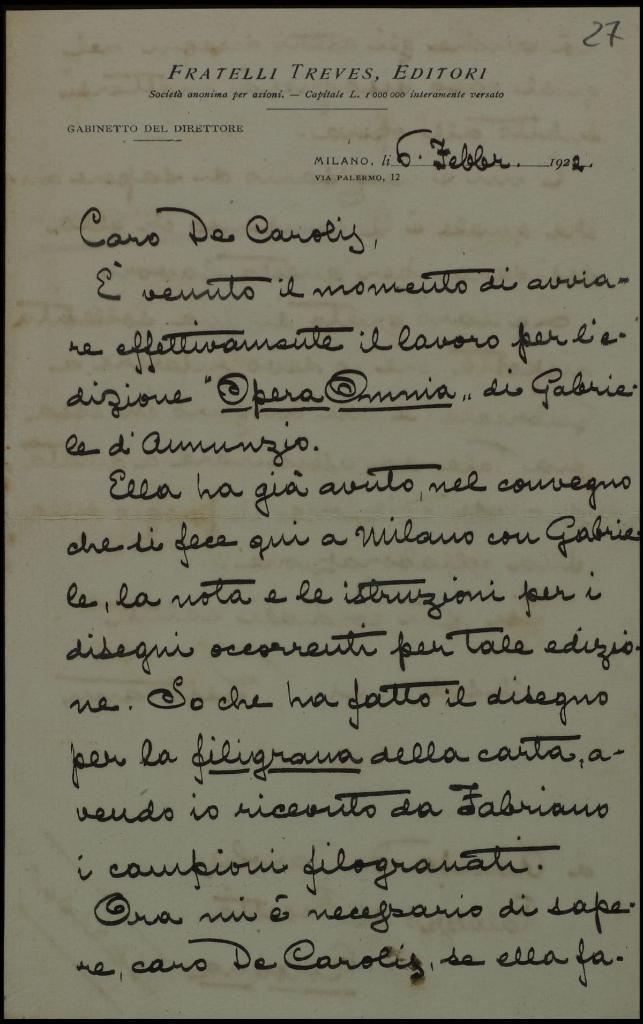 27
FRATELLI TREVES, EDITORI
Società anonima per azioni. — Capitale L. 1 000 000 interamente versato
GABINETTO DEL DIRETTORE
MILANO, li 6. Febbr. 1922.
VIA PALERMO, 12
Caro De Carolis,
È venuto il momento di avvia=
re effettivamente il lavoro per l'e-
dizione "Opera Omnia" di Gabrie-
le d'Annunzio.
Ella ha già avuto, nel convegno
che si fece qui a Milano con Gabrie-
le, la nota e le istruzioni per i
disegni occorrenti per tale edizio-
ne. So che ha fatto il disegno
per la filigrana della carta, a-
vendo io ricevuto da Fabriano
i campioni filogranati.
Ora mi è necessario di sape-
re, caro De Carolis, se ella fa-